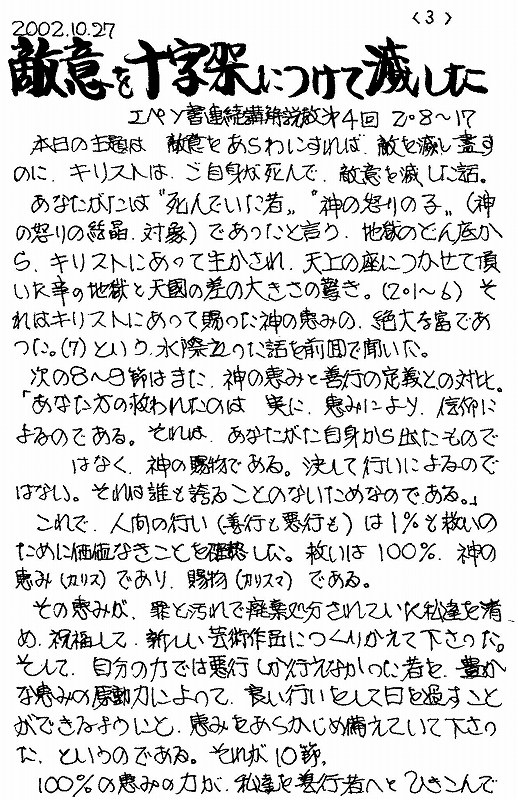 2002.10.27
〈3〉
敵意を十字架につけて滅した
エペソ書連続講解説教才4回 2:8〜17
本日の主題は 敵意をあらわにすれば、敵を滅し盡す
のに、キリストは、ご自身が死んで、敵意を滅した話。
あなたがたは〝死んでいた者〟〝神の怒りの子〟(神
の怒りの結晶、対象)であったと言う、地獄のどん底か
ら、キリストにあって生かされ、天上の座につかせて頂
いた幸の地獄と天國の差の大きさの驚き。(2:1〜6) そ
れはキリストにあって賜った神の恵みの、絶大な富であ
った。(7)という、水際立った話を前回で聞いた。
次の8〜9節はまた、神の恵みと善行の定義との対比。
「あなた方の救われたのは 実に、恵みにより、信仰に
よるのである。それは、あなたがた自身から出たもので
はなく、神の賜物である。決して行いによるので
はない。それは誰も誇ることのないためなのである。」
これで、人間の行い(善行も悪行も)は1%も救いの
ために価値なきことを確認した。救いは100%、神の
恵み(カリス)であり、賜物(カリスマ)である。
その恵みが、罪と汚れで廃棄処分されていた私達を清
め、祝福して、新しい芸術作品につくりかえて下さった。
そして、自分の力では悪行しか行えなかった者を、豊か
な恵みの原動力によって、良い行いをして日を過すこと
ができるようにと、恵みをあらかじめ備えていて下さっ
た、というのである。それが10節。
100%の恵みの力が、私達を善行者へとひきこんで